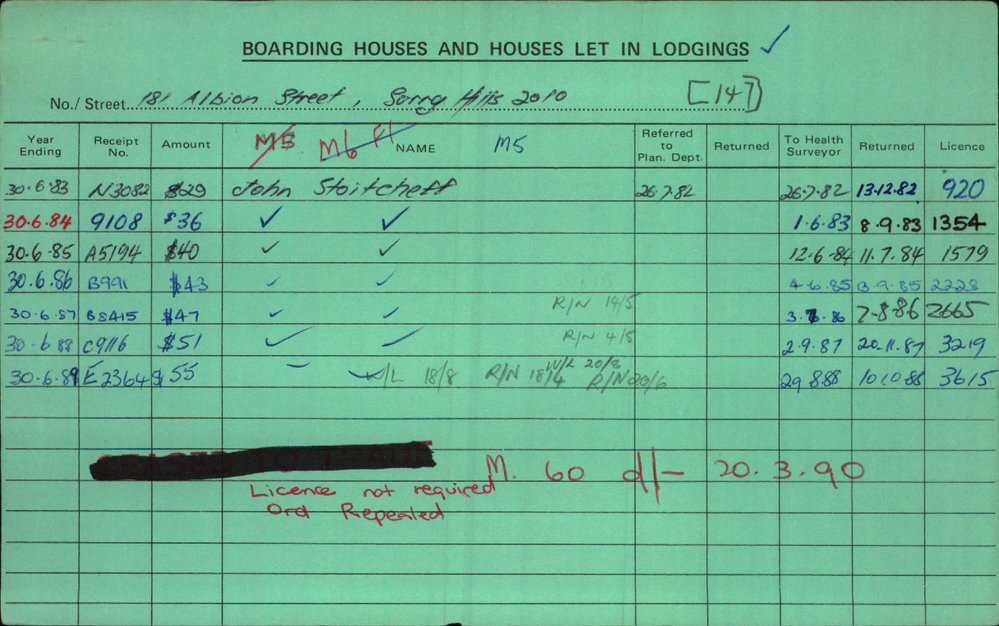 BOARDING HOUSES AND HOUSES LET IN LODGINGS ✓
No./Street 181 Albion Street, Surry Hills 2010 [147]
Year Ending Receipt No. Amount M5 M6 F1 NAME M5 Referred to Plan. Dept. Returned To Health Surveyor Returned Licence
30.6.83 N3082 $29 John Stoitcheff 26.7.82 26.7.82 13.12.82 920
30.6.84 9108 $36 ✓ ✓ 1.6.83 8.9.83 1354
30.6.85 A5194 $40 ✓ ✓ 12.6.84 11.7.84 1579
30.6.86 B991 $43 ✓ ✓ 4.6.85 13.9.85 2228
30.6.87 B8415 $47 ✓ ✓ R/N 14/5 3.7.86 7-8-86 2665
30.6.88 C9116 $51 ✓ ✓ R/N 4/5 2.9.87 20.11.87 3219
30.6.89 E2364 $55 ✓ ✓ W/L 18/8 R/N 18/4 W/L 20/6 R/N 20/6 29.8.88 10.10.88 3615
M. 60 d/- 20.3.90
Licence not required
Ord Repealed